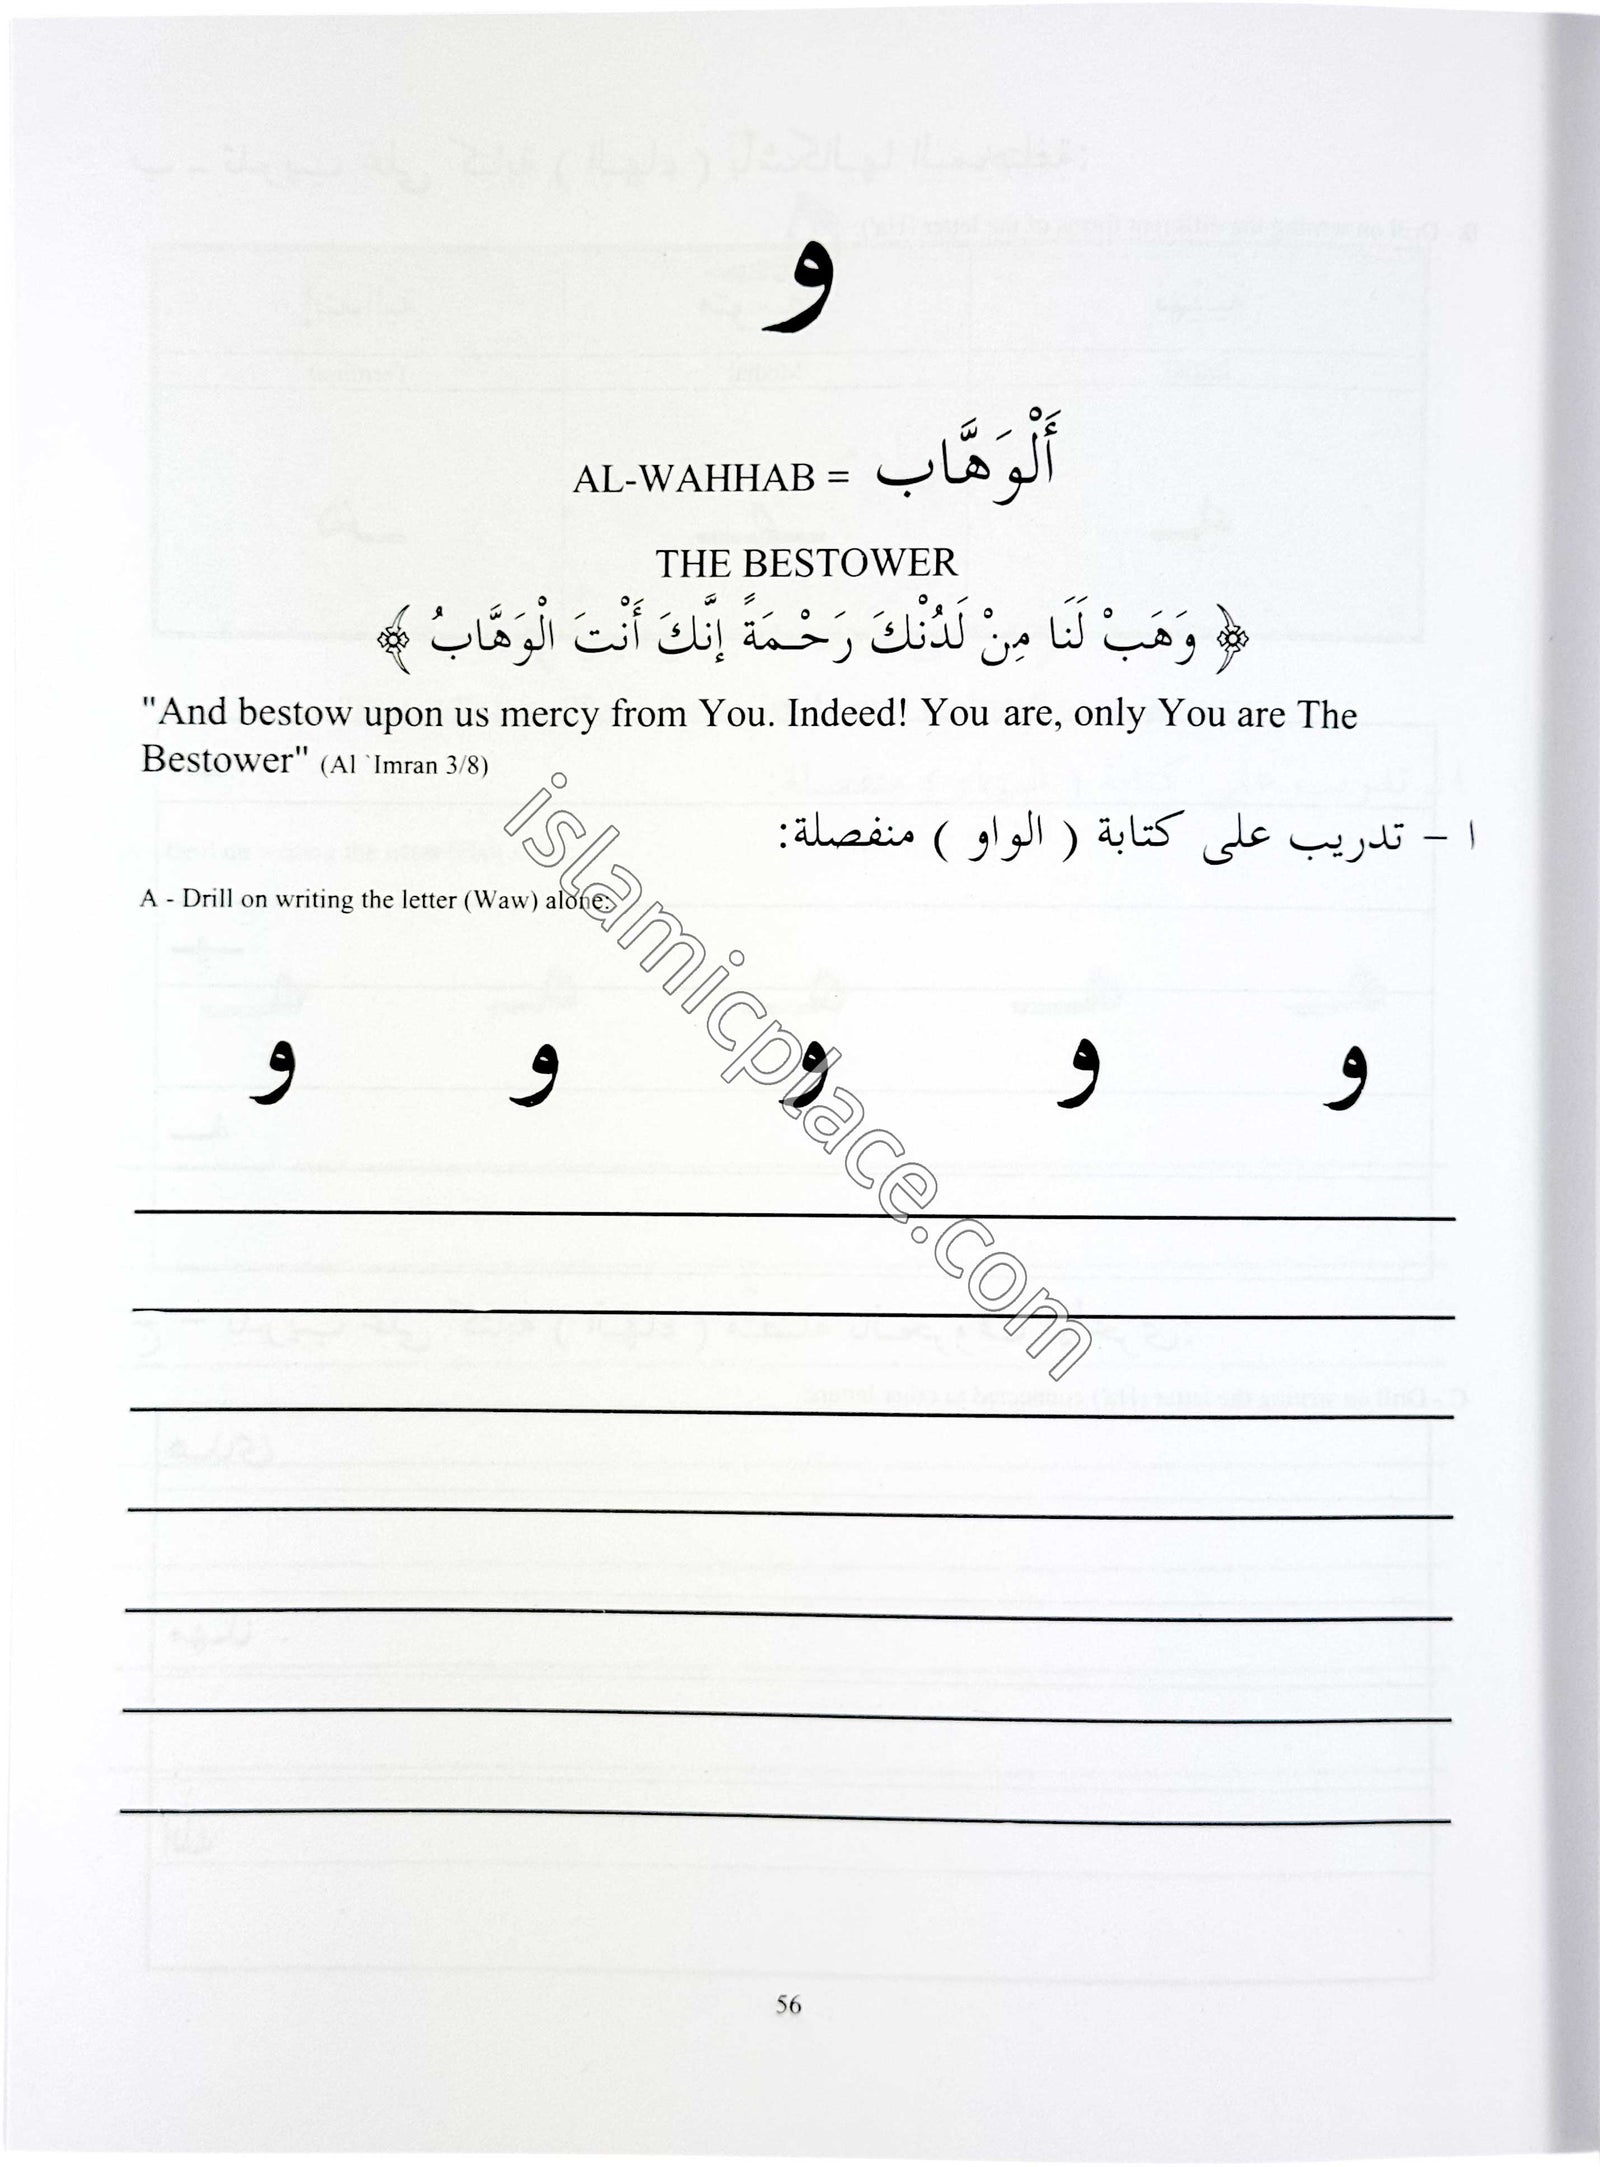 و
AL-WAHHAB = أَلْوَهَّاب
THE BESTOWER
﴿ وَهَبْ لَنَا مِنْ لَدُنْكَ رَحْمَةً إِنَّكَ أَنْتَ الْوَهَّابُ ﴾
"And bestow upon us mercy from You. Indeed! You are, only You are The
Bestower" (Al `Imran 3/8)
ا - تدريب على كتابة ( الواو ) منفصلة:
A - Drill on writing the letter (Waw) alone:
و و و و و
islamicplace.com
56